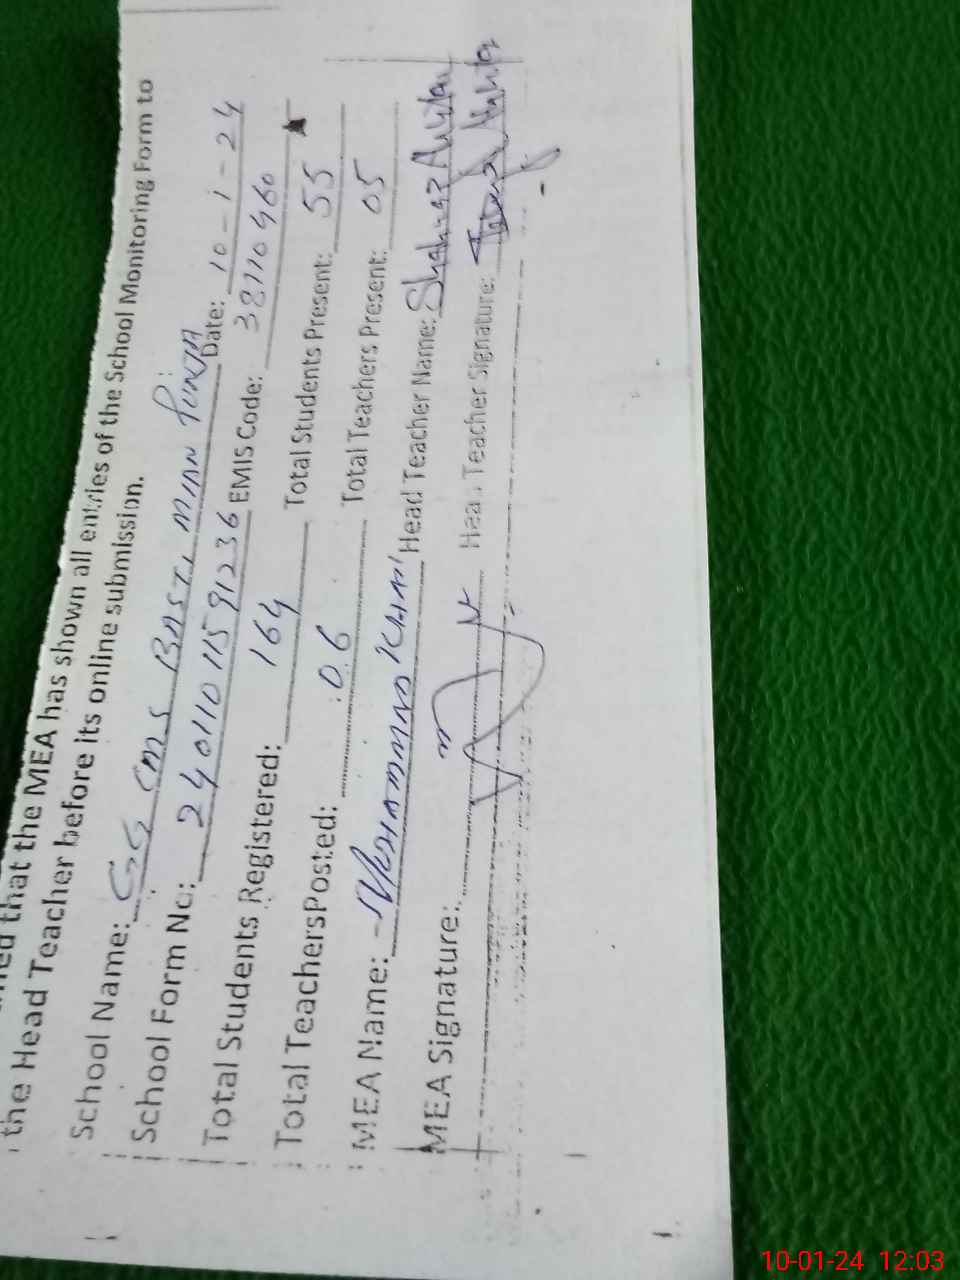 that the MEA has shown all entries of the School Monitoring Form to
the Head Teacher before its online submission.
School Name: GG CMS BASTI MIAN PUNJA Date: 10-1-24
School Form No: 24011011591236 EMIS Code: 38110460
Total Students Registered: 164 Total Students Present: 55
Total TeachersPosted: 06 Total Teachers Present: 05
MEA Name: MUHAMMAD KHAN Head Teacher Name: Shahnaz Akhtar
MEA Signature: Head Teacher Signature:
10-01-24 12:03